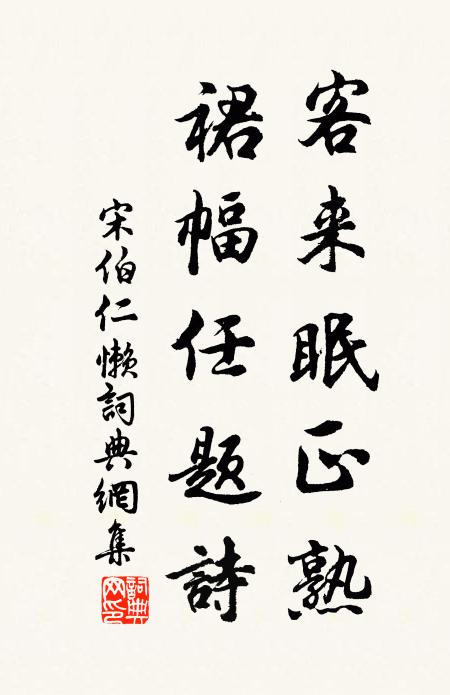 客来眠正熟
裙幅任题詩
宋伯仁懒詞典網集
詞典网印